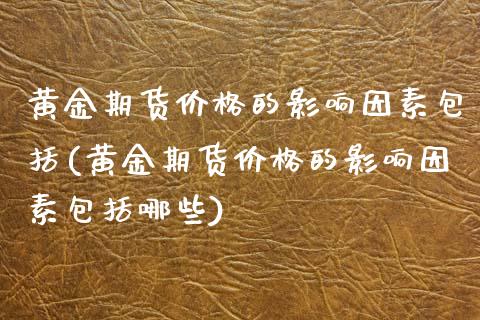 黄金期货价格的影响因素包
括(黄金期货价格的影响因
素包括哪些)